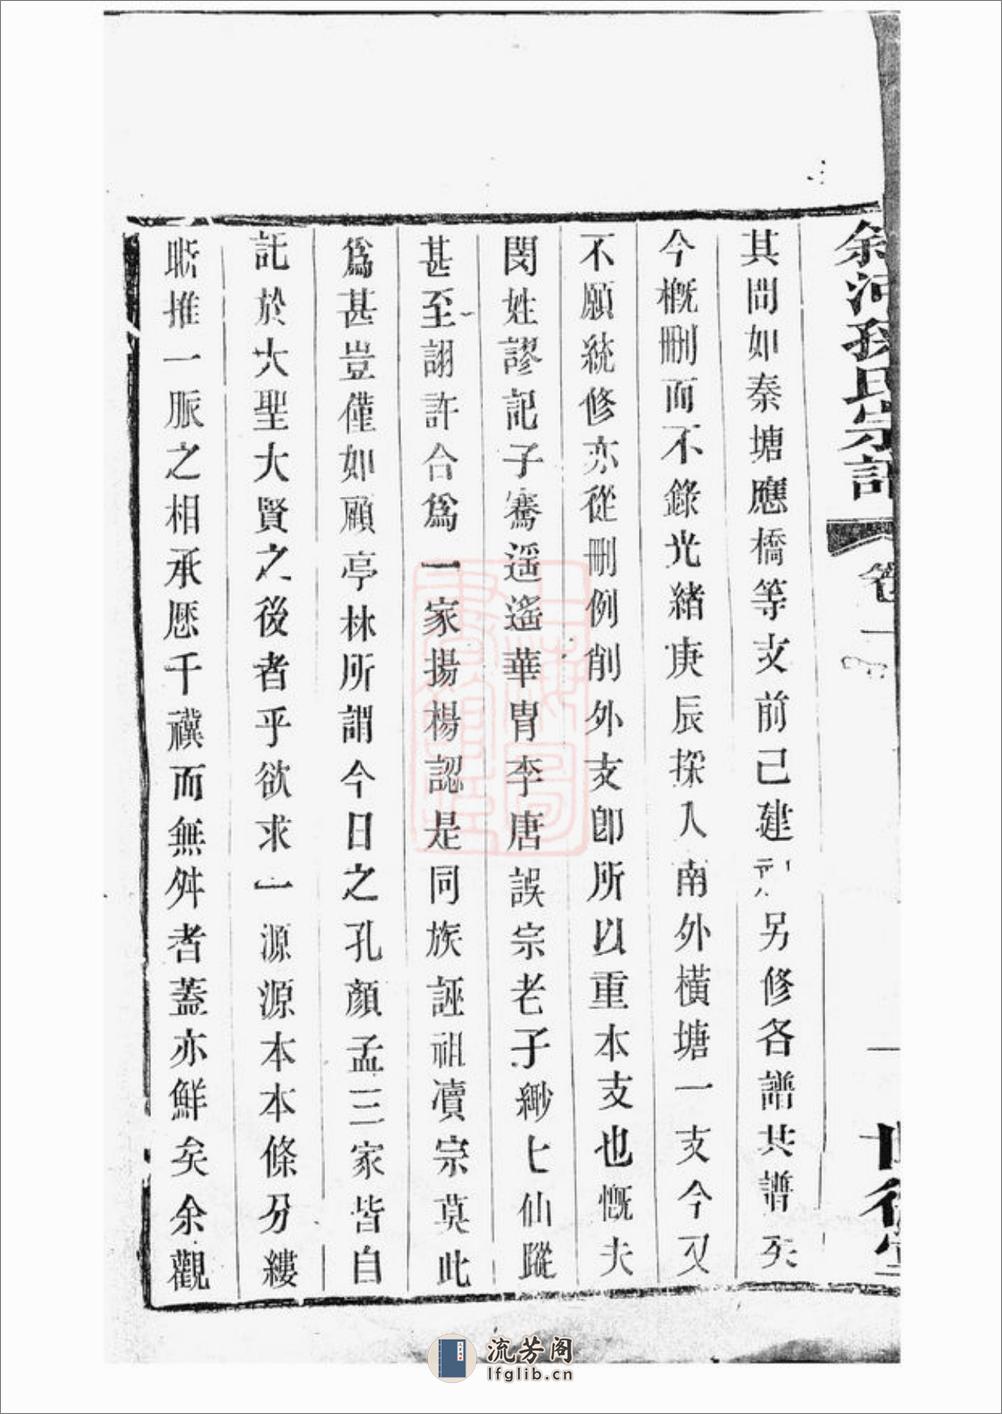 余河孫氏宗譜 卷一
其間如秦塘應橋等支前已建祠另修各譜其譜
今槪刪而不錄光緒庚辰採入南外橫塘一支今又
不願統修亦從刪例削外支卽所以重本支也慨夫
閔姓謬記子騫遥遙華胄李唐誤宗老子緲匕仙蹤
甚至詡許合爲一家揚楊認是同族誣祖凟宗莫此
爲甚豈僅如顧亭林所謂今日之孔顏孟三家皆自
託於大聖大賢之後者乎欲求一源源本本條分縷
晣推一脈之相承歷千禩而無舛者蓋亦鮮矣余觀
流芳阁
lfglib.cn